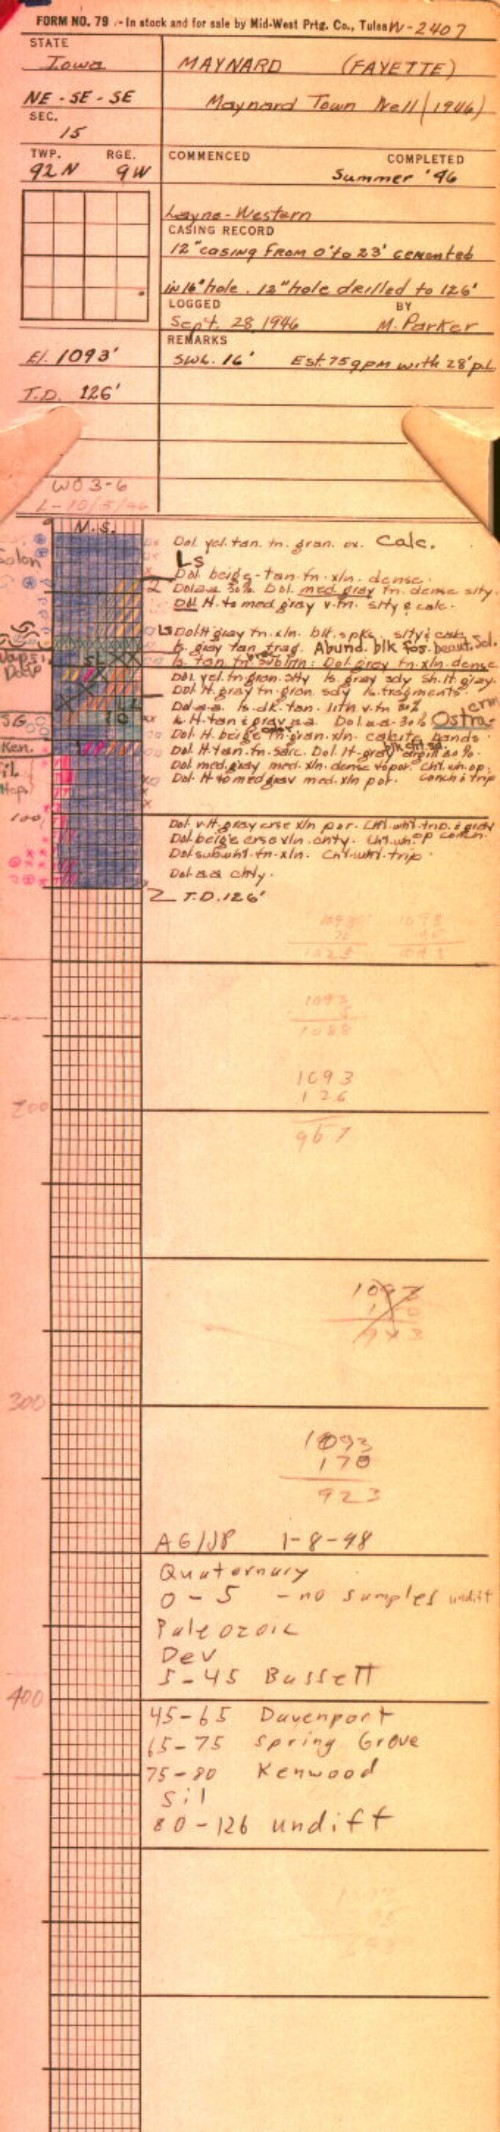 FORM NO. 79 - In stock and for sale by Mid-West Prtg. Co., Tulsa W-2407
STATE
Iowa MAYNARD (FAYETTE)
NE-SE-SE Maynard Town Well (1946)
SEC.
15
TWP. RGE. COMMENCED COMPLETED
92N 9W Summer '46
Layne-Western
CASING RECORD
12" casing from 0' to 23' cemented
in 16" hole. 12" hole drilled to 126'
LOGGED BY
Sept. 28, 1946 M. Parker
REMARKS
El. 1093' SWL. 16' Est. 75gpm with 28' p.l.
T.D. 126'
W03-6
L-10/5/46
M.S.
Solon
Dol. yel. tan. fn. gran. ex. Calc.
Ls
Dol. beige-tan. fn. xln. dense.
Dol. a.a. 30% Dol. med. gray fn. dense slty.
Dol. lt. to med gray v. fn. slty & calc.
Ls Dol. lt gray fn. xln. blk. spks. slty & calc.
ls. gray tan frag. Abund. blk fos.
ls. tan fn sublith: Dol. grey fn. xln. dense
Dol. yel. fn gran. slty ls. gray sdy sh. lt. gray.
Dol lt. gray fn. gran sdy ls. fragments
Dol. a.a. ls. dk. tan. lith v. fn 30%
S.G.
ls. lt. tan & gray a.a. Dol. a.a. 30% Ostra-
Dol. lt. beige fn. gran. xln. calcite bands
Ken.
Dol. lt. tan. fn. sacc. Dol. lt-gray
Dol. med. gray med. xln. dense to por. cht. wh. op.
Dol. lt to med gray med. xln por. conch & trip
100
Dol. v. lt. gray crse xln por. cht. wht. trip. & gray
Dol. beige crse xln. chty. cht. wh. op conch.
Dol. subwht. fn. xln. cht. wht. trip.
Dol. a.a. chty.
T.D. 126'
1093
5
1088
200
1093
126
967
300
1093
170
923
AG/JP 1-8-98
Quaternary
0-5 - no samples undift
Paleozoic
Dev
5-45 Bassett
400
45-65 Davenport
65-75 Spring Grove
75-80 Kenwood
Sil
80-126 undift